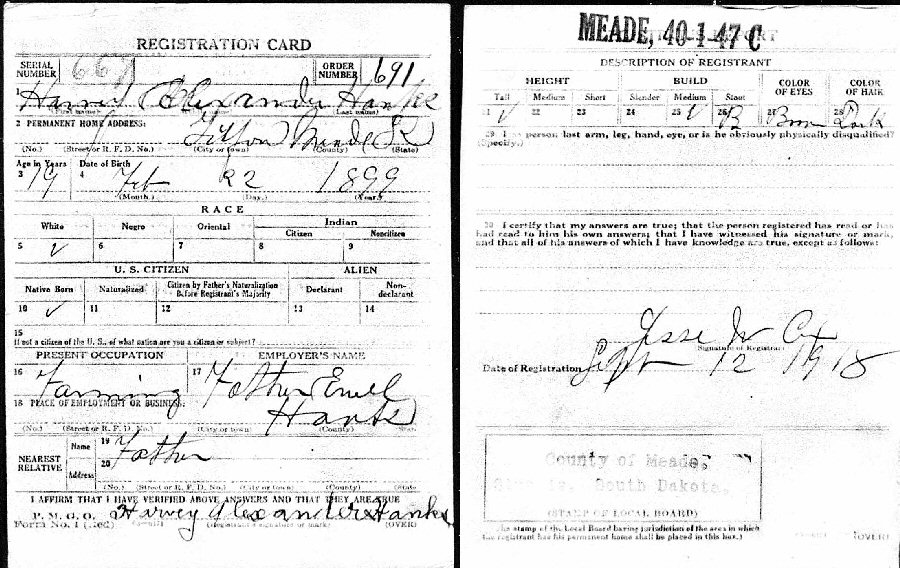 REGISTRATION CARD
SERIAL NUMBER 667 ORDER NUMBER 691
Harvey Alexander Hanks
(First name) (Last name)
2 PERMANENT HOME ADDRESS: Meade
(No.) (Street or R. F. D. No.) (City or town) (County) (State)
Age in Years Date of Birth
3 19 4 Feb 22 1899
(Month.) (Day.) (Year.)
RACE
White Negro Oriental Indian
Citizen Noncitizen
5 ✓ 6 7 8 9
U. S. CITIZEN ALIEN
Native Born Naturalized Citizen by Father's Naturalization Before Registrant's Majority Declarant Non-declarant
10 ✓ 11 12 13 14
15
If not a citizen of the U. S., of what nation are you a citizen or subject?
PRESENT OCCUPATION EMPLOYER'S NAME
16 Farming 17 Father
18 PLACE OF EMPLOYMENT OR BUSINESS: Hanks
(No.) (Street or R. F. D. No.) (City or town) (County) State
NEAREST RELATIVE Name 19 Father
Address 20
(No.) (Street or R. F. D. No.) (City or town) (County) (State)
I AFFIRM THAT I HAVE VERIFIED ABOVE ANSWERS AND THAT THEY ARE TRUE
P. M. G. O. Harvey Alexander Hanks
Form No. 1 (Red) (Registrant's signature or mark) (OVER)
MEADE, 40-1-47 C
DESCRIPTION OF REGISTRANT
HEIGHT BUILD COLOR OF EYES COLOR OF HAIR
Tall Medium Short Slender Medium Stout
21 ✓ 22 23 24 25 ✓ 26 27 Brown 28 Dark
29 Has person lost arm, leg, hand, eye, or is he obviously physically disqualified?
(Specify.)
30 I certify that my answers are true; that the person registered has read or has
had read to him his own answers; that I have witnessed his signature or mark,
and that all of his answers of which I have knowledge are true, except as follows:
Jesse W Cox
Signature of Registrar
Date of Registration Sept 12 1918
County of Meade,
South Dakota.
(STAMP OF LOCAL BOARD)
(The stamp of the Local Board having jurisdiction of the area in which
the registrant has his permanent home shall be placed in this box.)
(OVER)